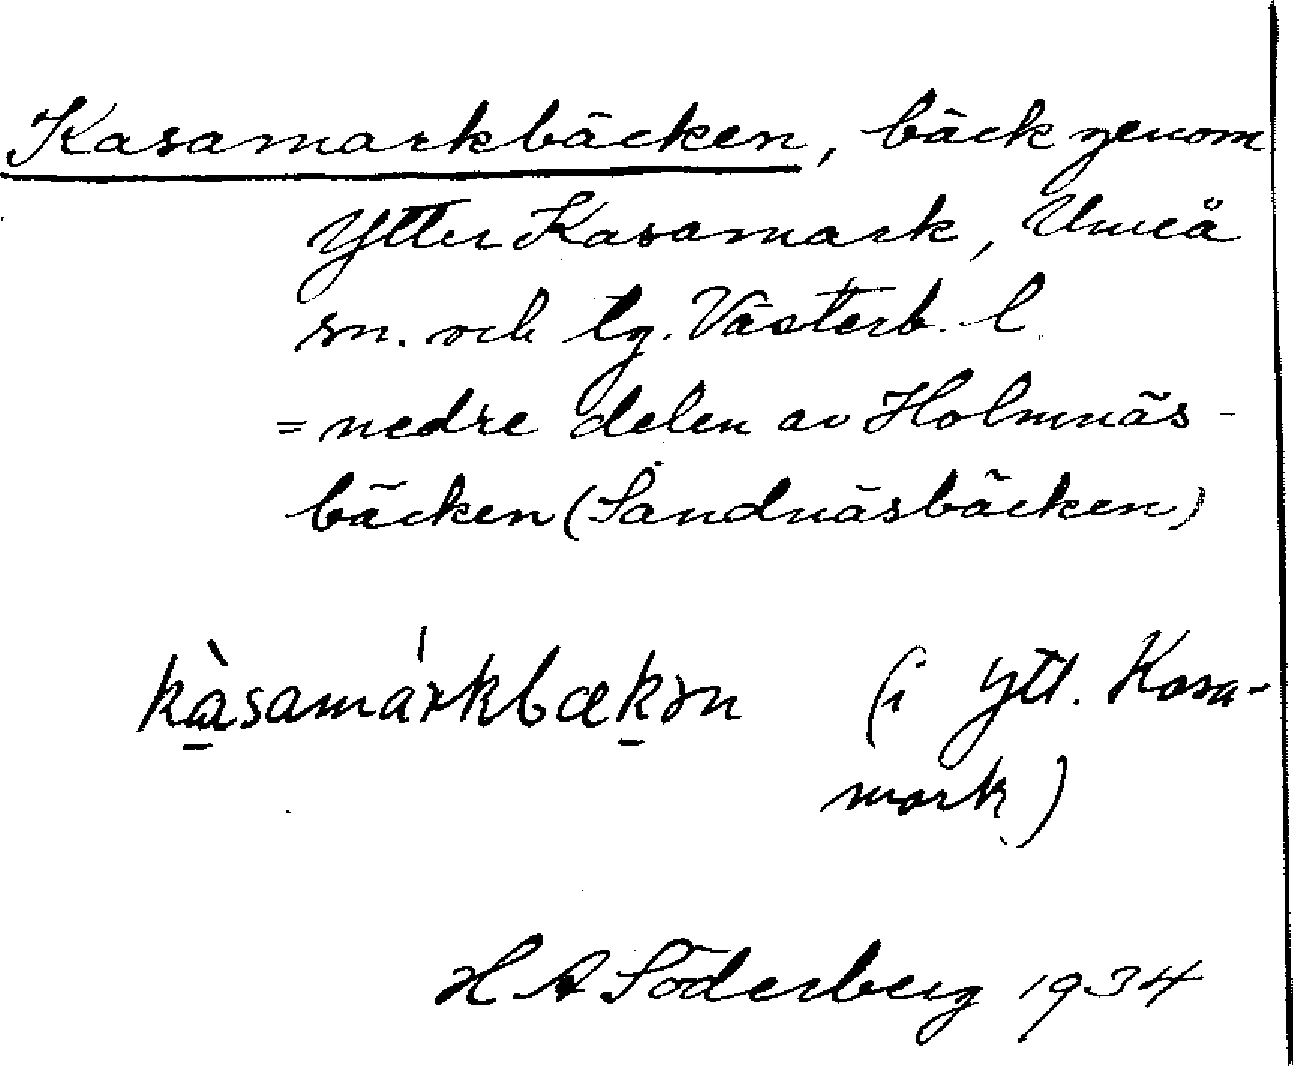 Kasamarkbäcken, bäck genom
Ytter Kasamark, Umeå
sn. och lg. Västerb. l.
= nedre delen av Holmnäs-
bäcken (Sandnäsbäcken)
kàsamárkbækən (i Ytt. Kasa-
mark)
H A Söderberg 1934